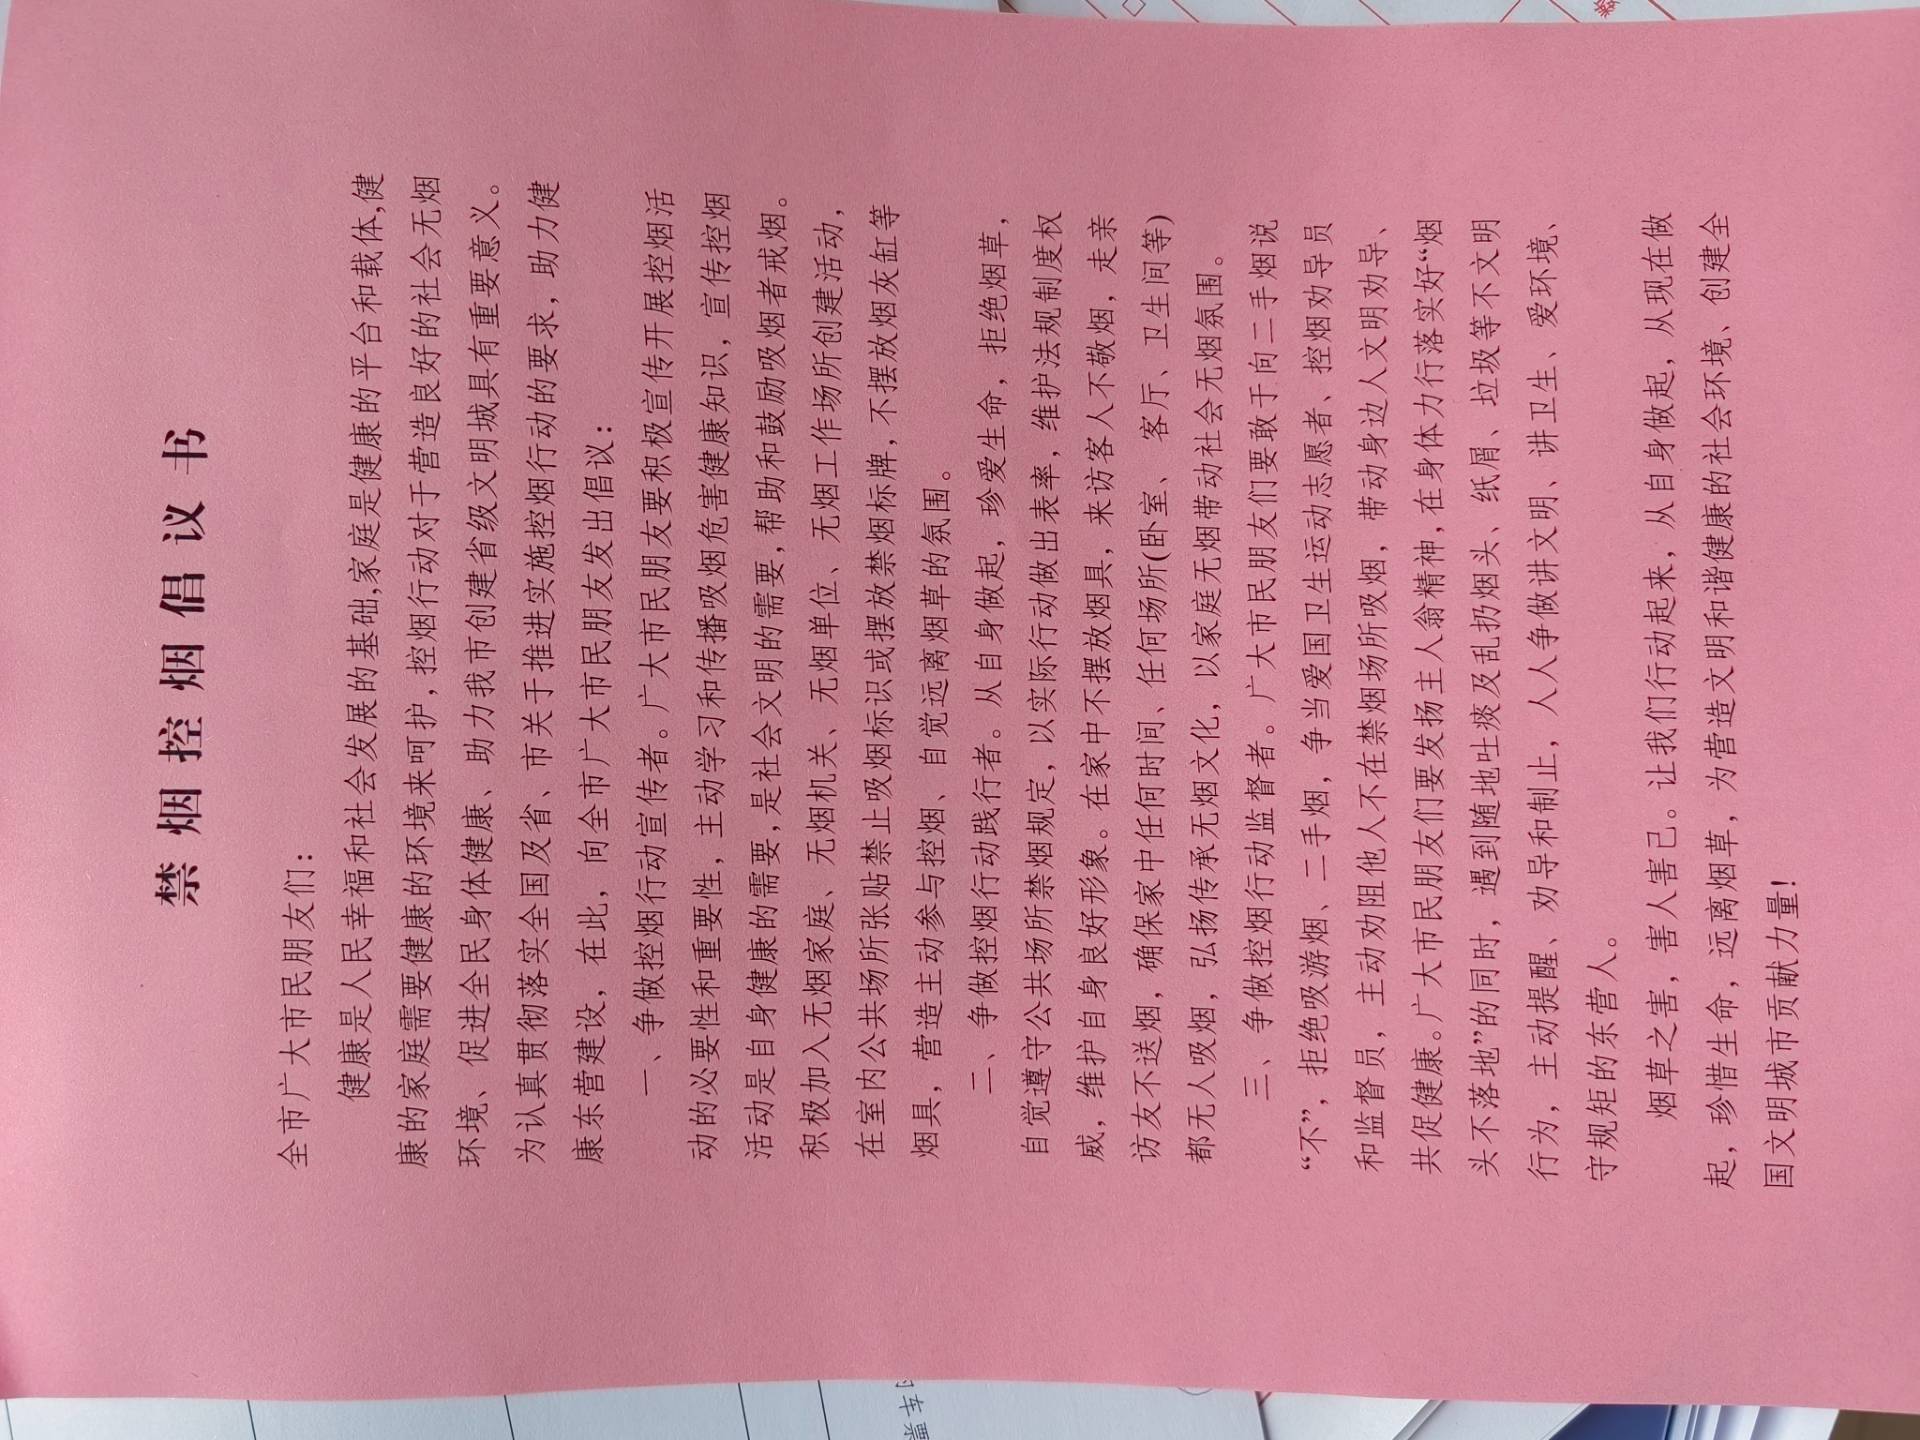 禁烟控烟倡议书
全市广大市民朋友们：
健康是人民幸福和社会发展的基础,家庭是健康的平台和载体,健
康的家庭需要健康的环境来呵护,控烟行动对于营造良好的社会无烟
环境、促进全民身体健康、助力我市创建省级文明城具有重要意义。
为认真贯彻落实全国及省、市关于推进实施控烟行动的要求，助力健
康东营建设，在此，向全市广大市民朋友发出倡议：
一、争做控烟行动宣传者。广大市民朋友要积极宣传开展控烟活
动的必要性和重要性，主动学习和传播吸烟危害健康知识，宣传控烟
活动是自身健康的需要,是社会文明的需要,帮助和鼓励吸烟者戒烟。
积极加入无烟家庭、无烟机关、无烟单位、无烟工作场所创建活动，
在室内公共场所张贴禁止吸烟标识或摆放禁烟标牌,不摆放烟灰缸等
烟具，营造主动参与控烟、自觉远离烟草的氛围。
二、争做控烟行动践行者。从自身做起，珍爱生命，拒绝烟草，
自觉遵守公共场所禁烟规定，以实际行动做出表率，维护法规制度权
威，维护自身良好形象。在家中不摆放烟具，来访客人不敬烟，走亲
访友不送烟，确保家中任何时间、任何场所(卧室、客厅、卫生间等)
都无人吸烟，弘扬传承无烟文化，以家庭无烟带动社会无烟氛围。
三、争做控烟行动监督者。广大市民朋友们要敢于向二手烟说
“不”，拒绝吸游烟、二手烟，争当爱国卫生运动志愿者、控烟劝导员
和监督员，主动劝阻他人不在禁烟场所吸烟，带动身边人文明劝导、
共促健康。广大市民朋友们要发扬主人翁精神,在身体力行落实好“烟
头不落地”的同时，遇到随地吐痰及乱扔烟头、纸屑、垃圾等不文明
行为，主动提醒、劝导和制止，人人争做讲文明、讲卫生、爱环境、
守规矩的东营人。
烟草之害，害人害己。让我们行动起来，从自身做起，从现在做
起，珍惜生命，远离烟草，为营造文明和谐健康的社会环境、创建全
国文明城市贡献力量！